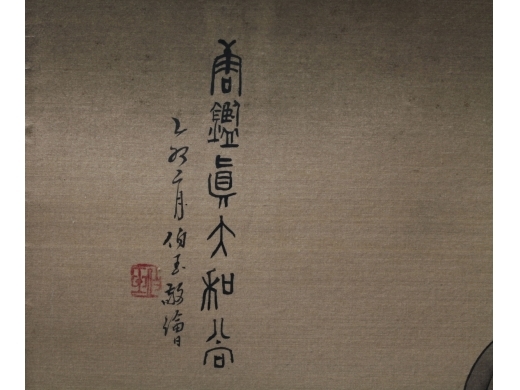 唐鑑眞大和尚
乙卯二月伯玉敬繪